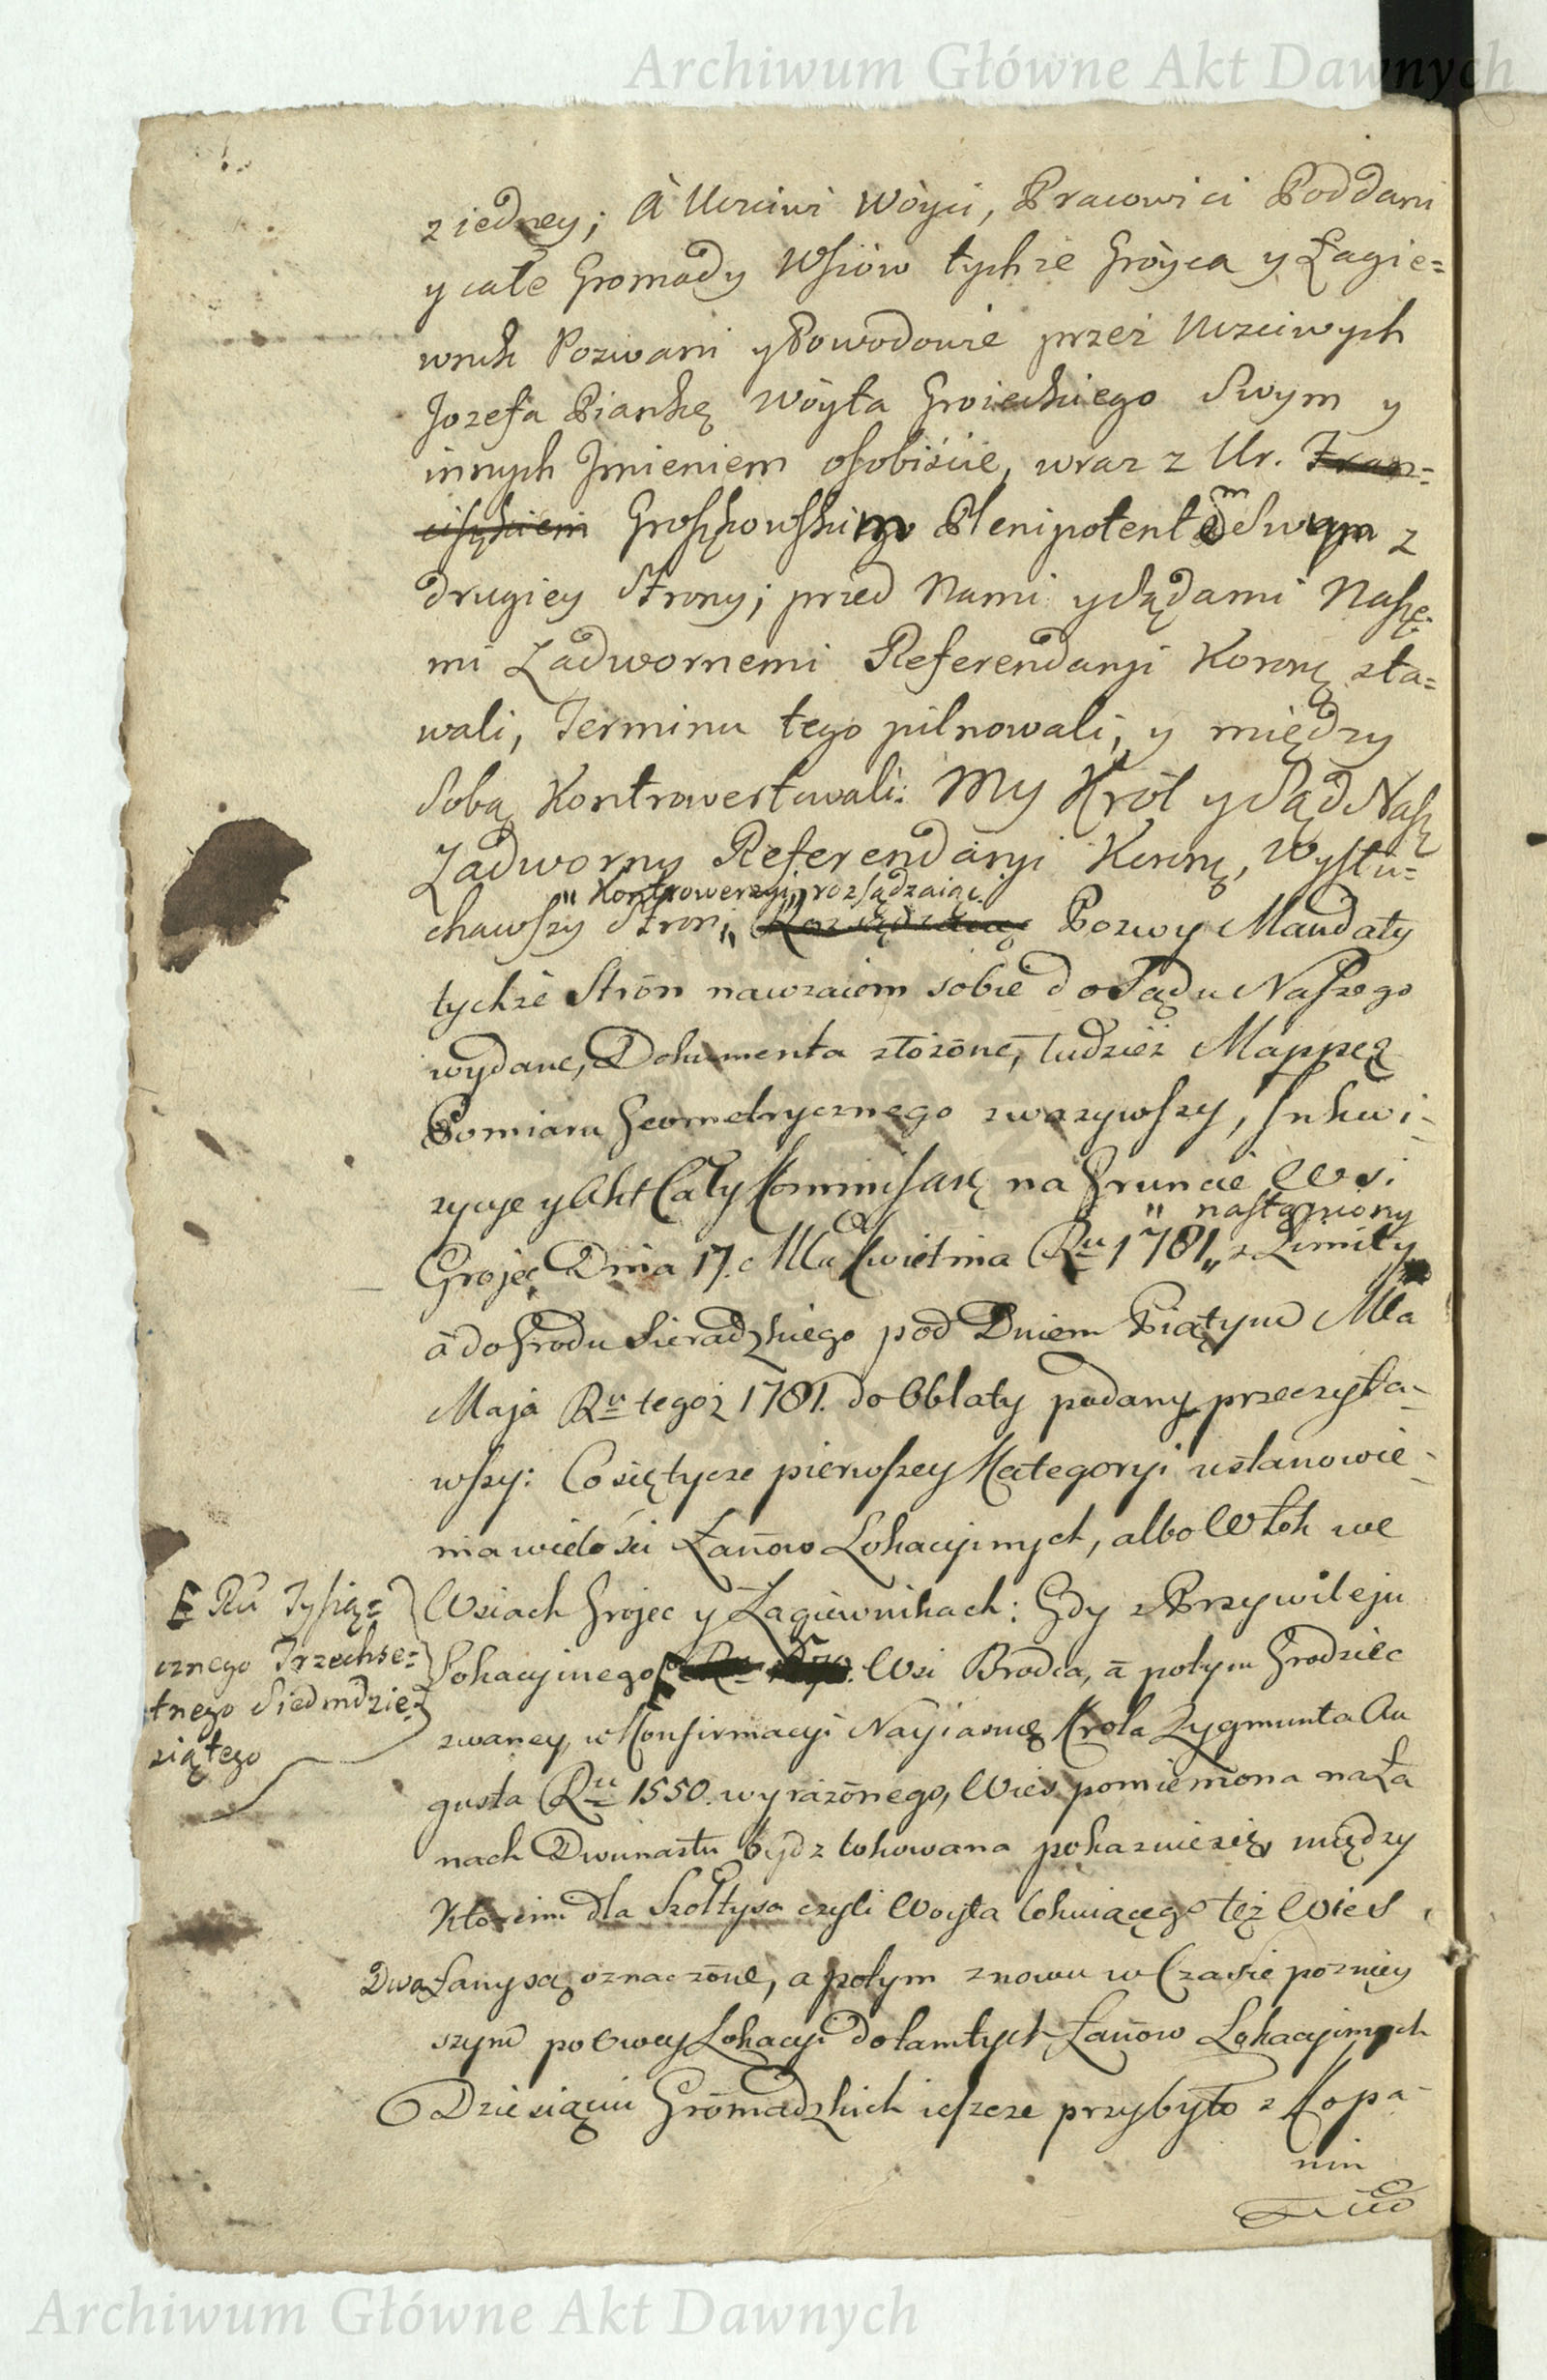 Archiwum Główne Akt Dawnych
z iedney; A Uczciwi Wóyci, Pracowici Poddani
y całe Gromady Wsiów tychże Gróyca y Łagie=
wnik Pozwani y Powodowie przez Uczciwych
Jozefa Piankę Wóyta Groieckiego Swym y
innych Jmieniem osobiście, wraz z Ur. Fran=
ciszkiem Groszkowskim Plenipotentem Swym z
drugiey Strony; przed Nami y Sądami Nasze-
mi Zadwornemi Referendaryi Koronę sta=
wali, Terminu tego pilnowali, y między
Sobą Kontrowertowali. My Król y Sąd Nasz
Zadworny Referendaryi Koronę, Wysłu=
" Kontrowersyi, rozsądzaiąc
chawszy Stron; " Rozsądzaiąc Pozwy Mandaty
tychże Strón nawzaiem sobie do Sądu Naszego
wydane, Dokumenta złożóne, tudzież Mappę z
Pomiaru Geometrycznego zważywszy, Jnkwi-
zycye y Akt Cały Kommissarę na Gruncie Wsi
" nastąpiony
Grojec Dnia 17. Mca Kwietnia Ru 1781 " z Limity
à do Grodu Sieradzkiego pod Dniem Piątym Mca
Maja Ru tegoż 1781. do Oblaty podany przeczyta-
wszy: Co się tycze pierwszey Kategoryi ustanowie-
nia wielości Łanów Lokacyinych, albo Włók we
Wsiach Grojec y Łagiewnikach: Gdy z Przywileju
Lokacyinego Ru 1370. Wsi Brodca, à potym Grodziec
zwaney, w Konfirmacyi Nayiasnię Krola Zygmunta Au
gusta Ru 1550. wyrażónego, Wieś pomieniona na Ła
nach Dwunastu bydz lokowana pokazuie się, między
Któremi dla Szołtysa czyli Woyta lokuiącego tęż Wieś
Dwa Łany są oznaczóne, a potym znowu w Czasie poźniey
szym po Owey Lokacyi do tamtych Łanów Lokacyinych
Dziesiąciu Grómadzkich ieszcze przybyło z Kopa-
nin
Ru Tysią=
cznego Trzechse=
tnego Siedmdzie=
siątego
Archiwum Główne Akt Dawnych